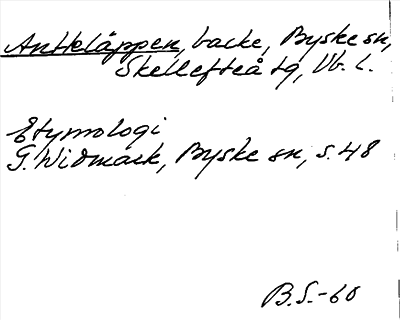 Antkläppen, backe, Byske sn,
Skellefteå tg, Vb. l.
Etymologi
G. Widmark, Byske sn, s. 48
B.S.-60